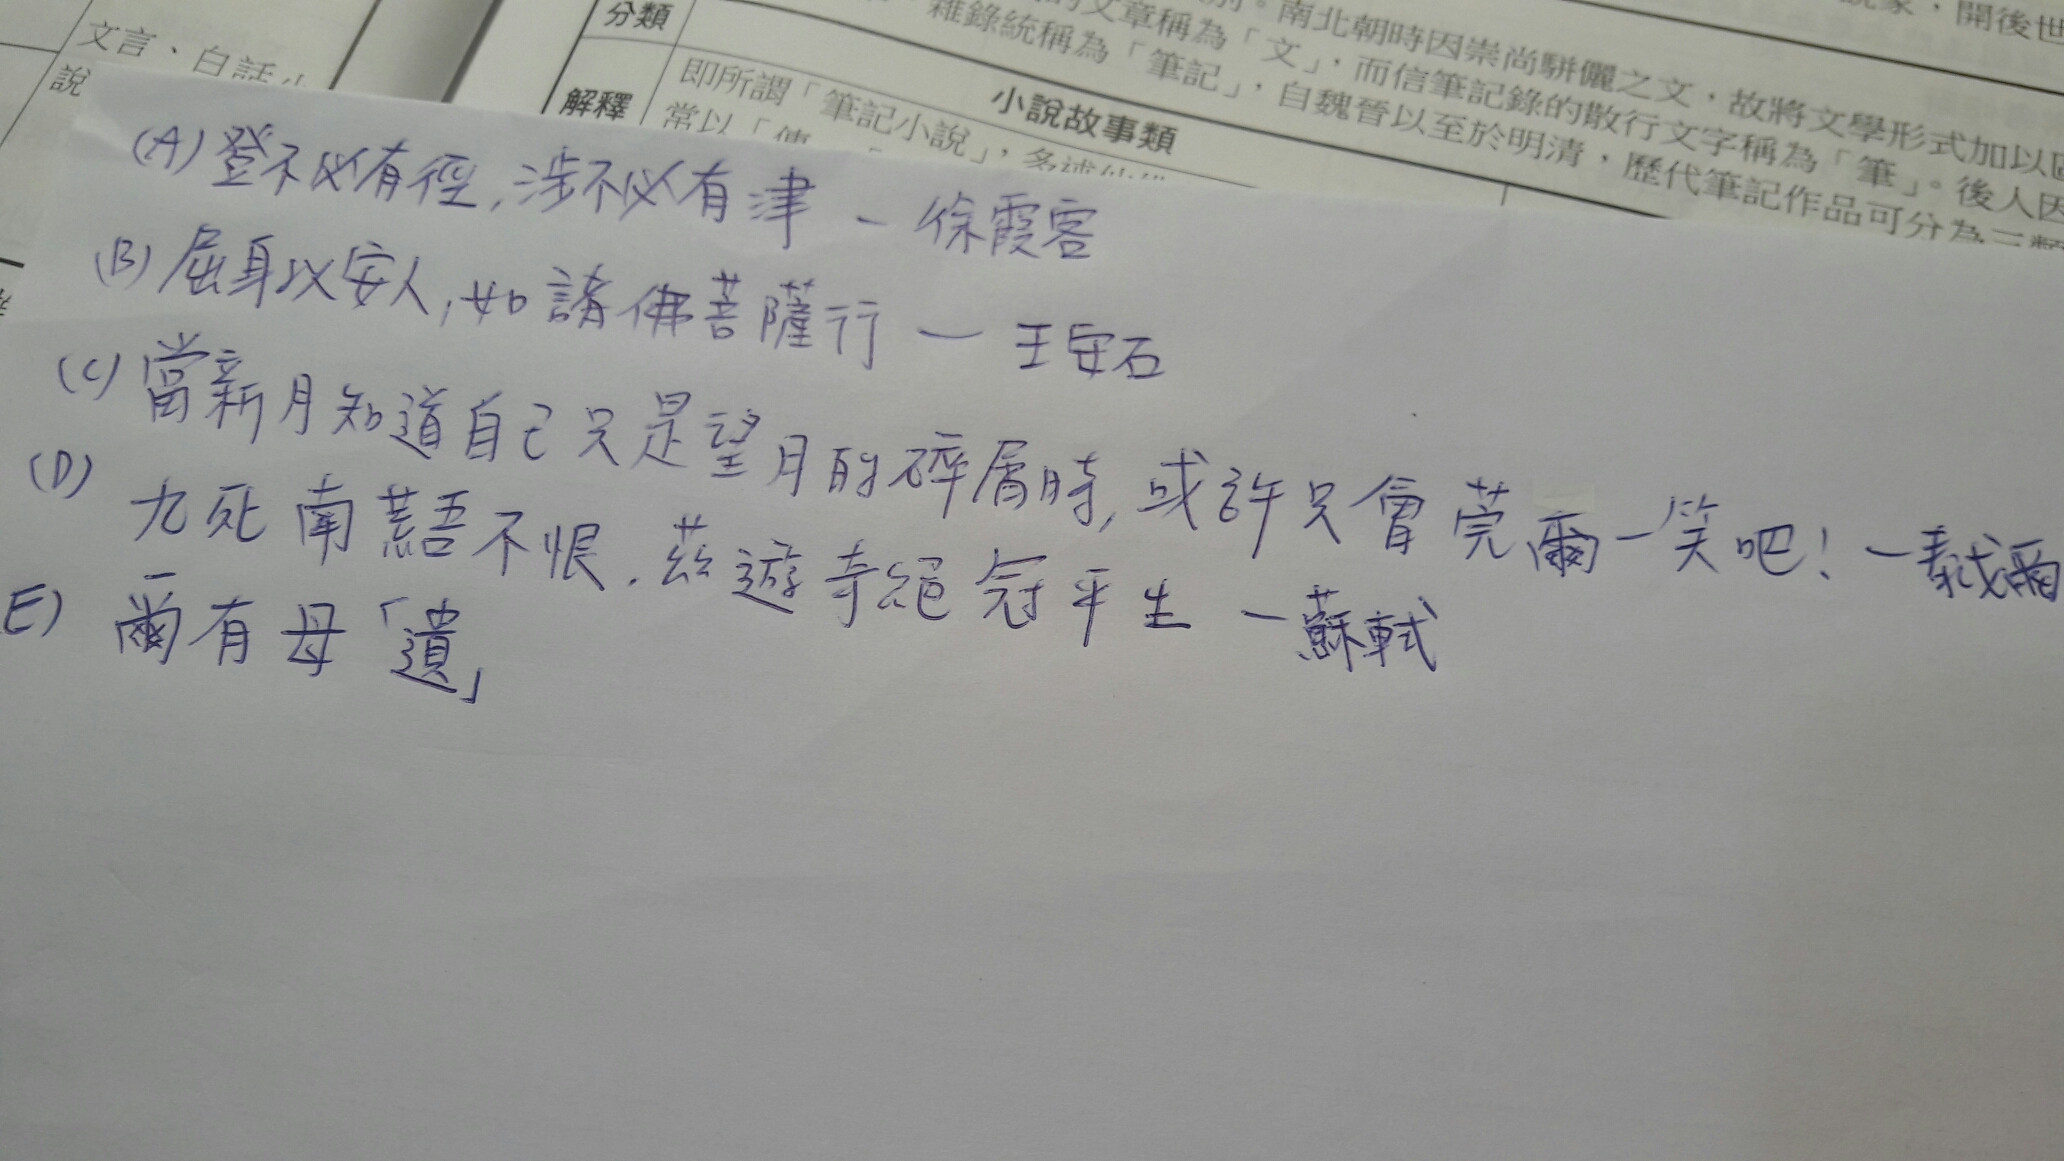 文言、白話小
說
分類
解釋
小說故事類
即所謂「筆記小說」,多述仙
常以「傳
的文章稱為「文」,而信筆記錄的散行文字稱為「筆」。後人因
別。南北朝時因崇尚駢儷之文,故將文學形式加以區
雜錄統稱為「筆記」,自魏晉以至於明清,歷代筆記作品可分為三類
,開後世
(A)登不必有徑,涉不必有津 — 徐霞客
(B)屈身以安人,如諸佛菩薩行 — 王安石
(C)當新月知道自己只是望月的碎屑時,或許只會莞爾一笑吧! — 泰戈爾
(D) 九死南荒吾不恨,茲遊奇絕冠平生 — 蘇軾
E) 爾有母「遺」